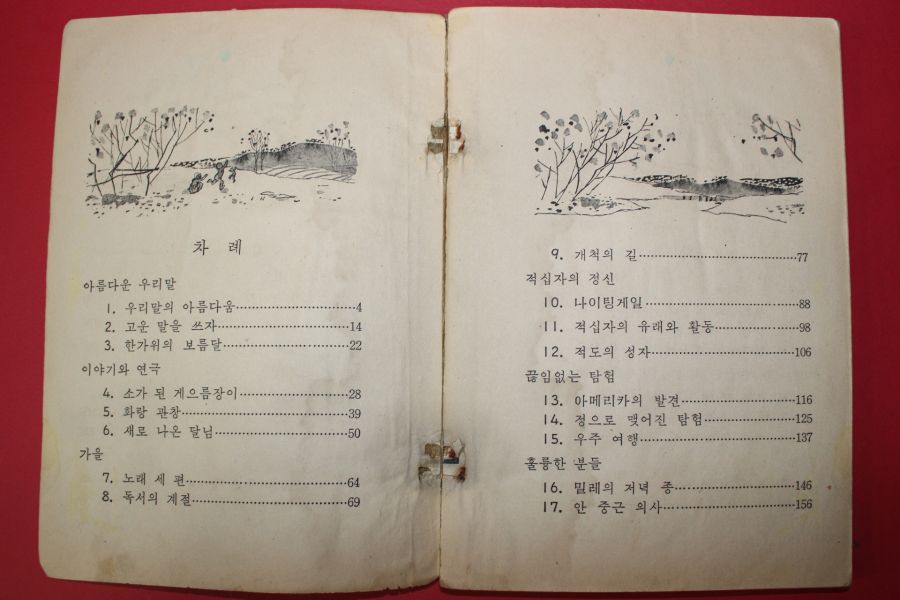 차 례
아름다운 우리말
1. 우리말의 아름다움……………………4
2. 고운 말을 쓰자……………………14
3. 한가위의 보름달……………………22
이야기와 연극
4. 소가 된 게으름장이……………………28
5. 화랑 관창……………………39
6. 새로 나온 달님……………………50
가을
7. 노래 세 편……………………64
8. 독서의 계절……………………69
9. 개척의 길……………………77
적십자의 정신
10. 나이팅게일……………………88
11. 적십자의 유래와 활동……………………98
12. 적도의 성자……………………106
끊임없는 탐험
13. 아메리카의 발견……………………116
14. 정으로 맺어진 탐험……………………125
15. 우주 여행……………………137
훌륭한 분들
16. 밀레의 저녁 종……………………146
17. 안 중근 의사……………………156